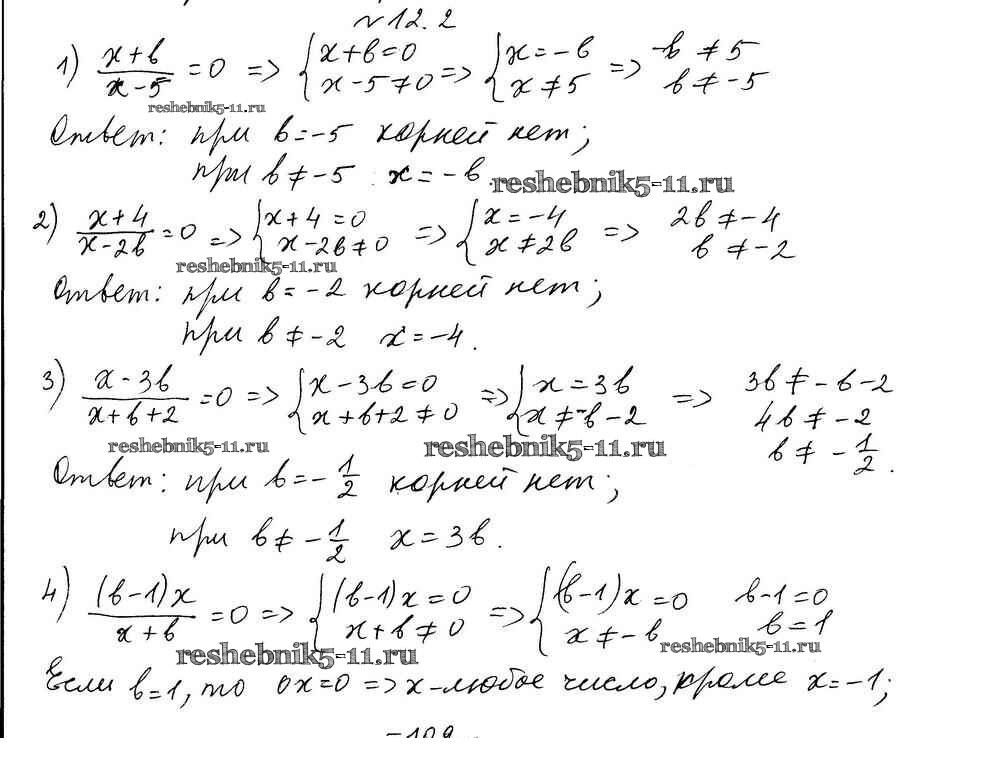 №12.2
1) (x+b)/(x-5) = 0 => { x+b=0 ; x-5≠0 => { x=-b ; x≠5 => -b≠5 ; b≠-5
reshebnik5-11.ru
Ответ: при b=-5 корней нет;
при b≠-5 x=-b.
reshebnik5-11.ru
2) (x+4)/(x-2b) = 0 => { x+4=0 ; x-2b≠0 => { x=-4 ; x≠2b => 2b≠-4 ; b≠-2
reshebnik5-11.ru
Ответ: при b=-2 корней нет;
при b≠-2 x=-4.
3) (x-3b)/(x+b+2) = 0 => { x-3b=0 ; x+b+2≠0 => { x=3b ; x≠-b-2 => 3b≠-b-2 ; 4b≠-2 ; b≠-1/2.
reshebnik5-11.ru
reshebnik5-11.ru
Ответ: при b=-1/2 корней нет;
при b≠-1/2 x=3b.
4) (b-1)x/(x+b) = 0 => { (b-1)x=0 ; x+b≠0 => { (b-1)x=0 ; x≠-b b-1=0 ; b=1
reshebnik5-11.ru
reshebnik5-11.ru
Если b=1, то 0x=0 => x-любое число, кроме x=-1;